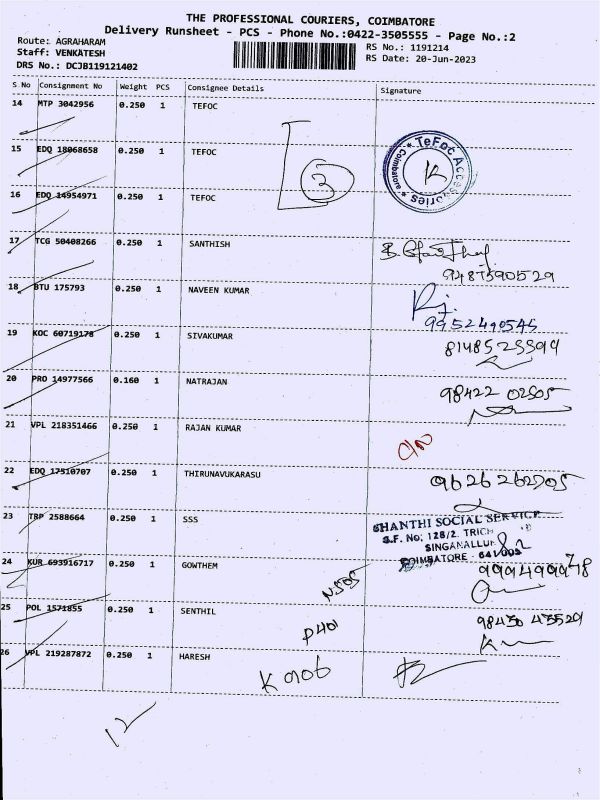 THE PROFESSIONAL COURIERS, COIMBATORE
Delivery Runsheet - PCS - Phone No.:0422-3505555 - Page No.:2
Route: AGRAHARAM
Staff: VENKATESH
DRS No.: DCJB119121402
RS No.: 1191214
RS Date: 20-Jun-2023
S No Consignment No Weight PCS Consignee Details Signature
14 MTP 3042956 0.250 1 TEFOC
15 EDQ 18068658 0.250 1 TEFOC
3
TeFoc Accessories
Coimbatore
16 EDQ 14954971 0.250 1 TEFOC
17 TCG 50408266 0.250 1 SANTHISH
9487590529
18 BTU 175793 0.250 1 NAVEEN KUMAR
9952490545
19 KOC 60719178 0.250 1 SIVAKUMAR
20 PRO 14977566 0.160 1 NATRAJAN
98422 02505
21 VPL 218351466 0.250 1 RAJAN KUMAR
22 EDQ 17510707 0.250 1 THIRUNAVUKARASU
9626262705
23 TRP 2588664 0.250 1 SSS
SHANTHI SOCIAL SERVICE
S.F. No. 128/2. TRICH
SINGANALLUR
COIMBATORE - 641 005
24 KUR 693916717 0.250 1 GOWTHEM
25 POL 1571855 0.250 1 SENTHIL
P401
98430 43529
26 VPL 219287872 0.250 1 HARESH
12